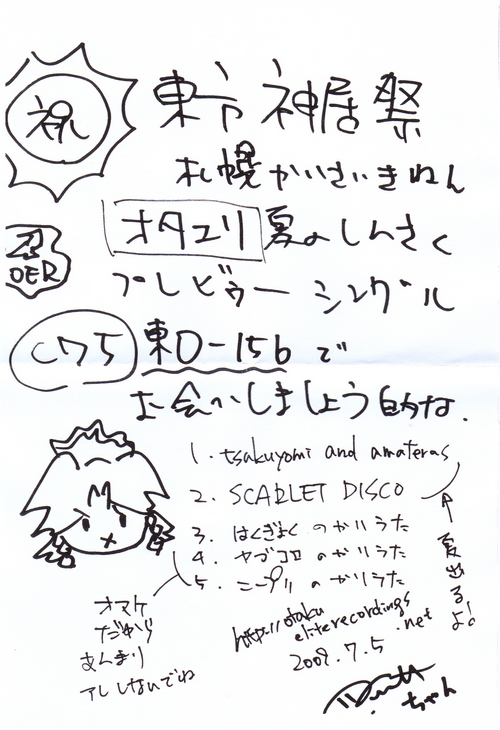 祝
東方神居祭
札幌かいさいきねん
オタエリ 夏のしんさく
忍
OER
プレビゥーシングル
C75 東O-15b で
お会いしましょう的な.
1. tsakuyomi and amateras
2. SCARLET DISCO
3. はくぎょくのかりうた
4. ヤゴコロのかりうた
5. ニープリのかりうた
夏出るよ!
オマケ
だから
あんまり
アレしないでね
http://otaku
eliterecordings
.net
2009.7.5
ちゃん